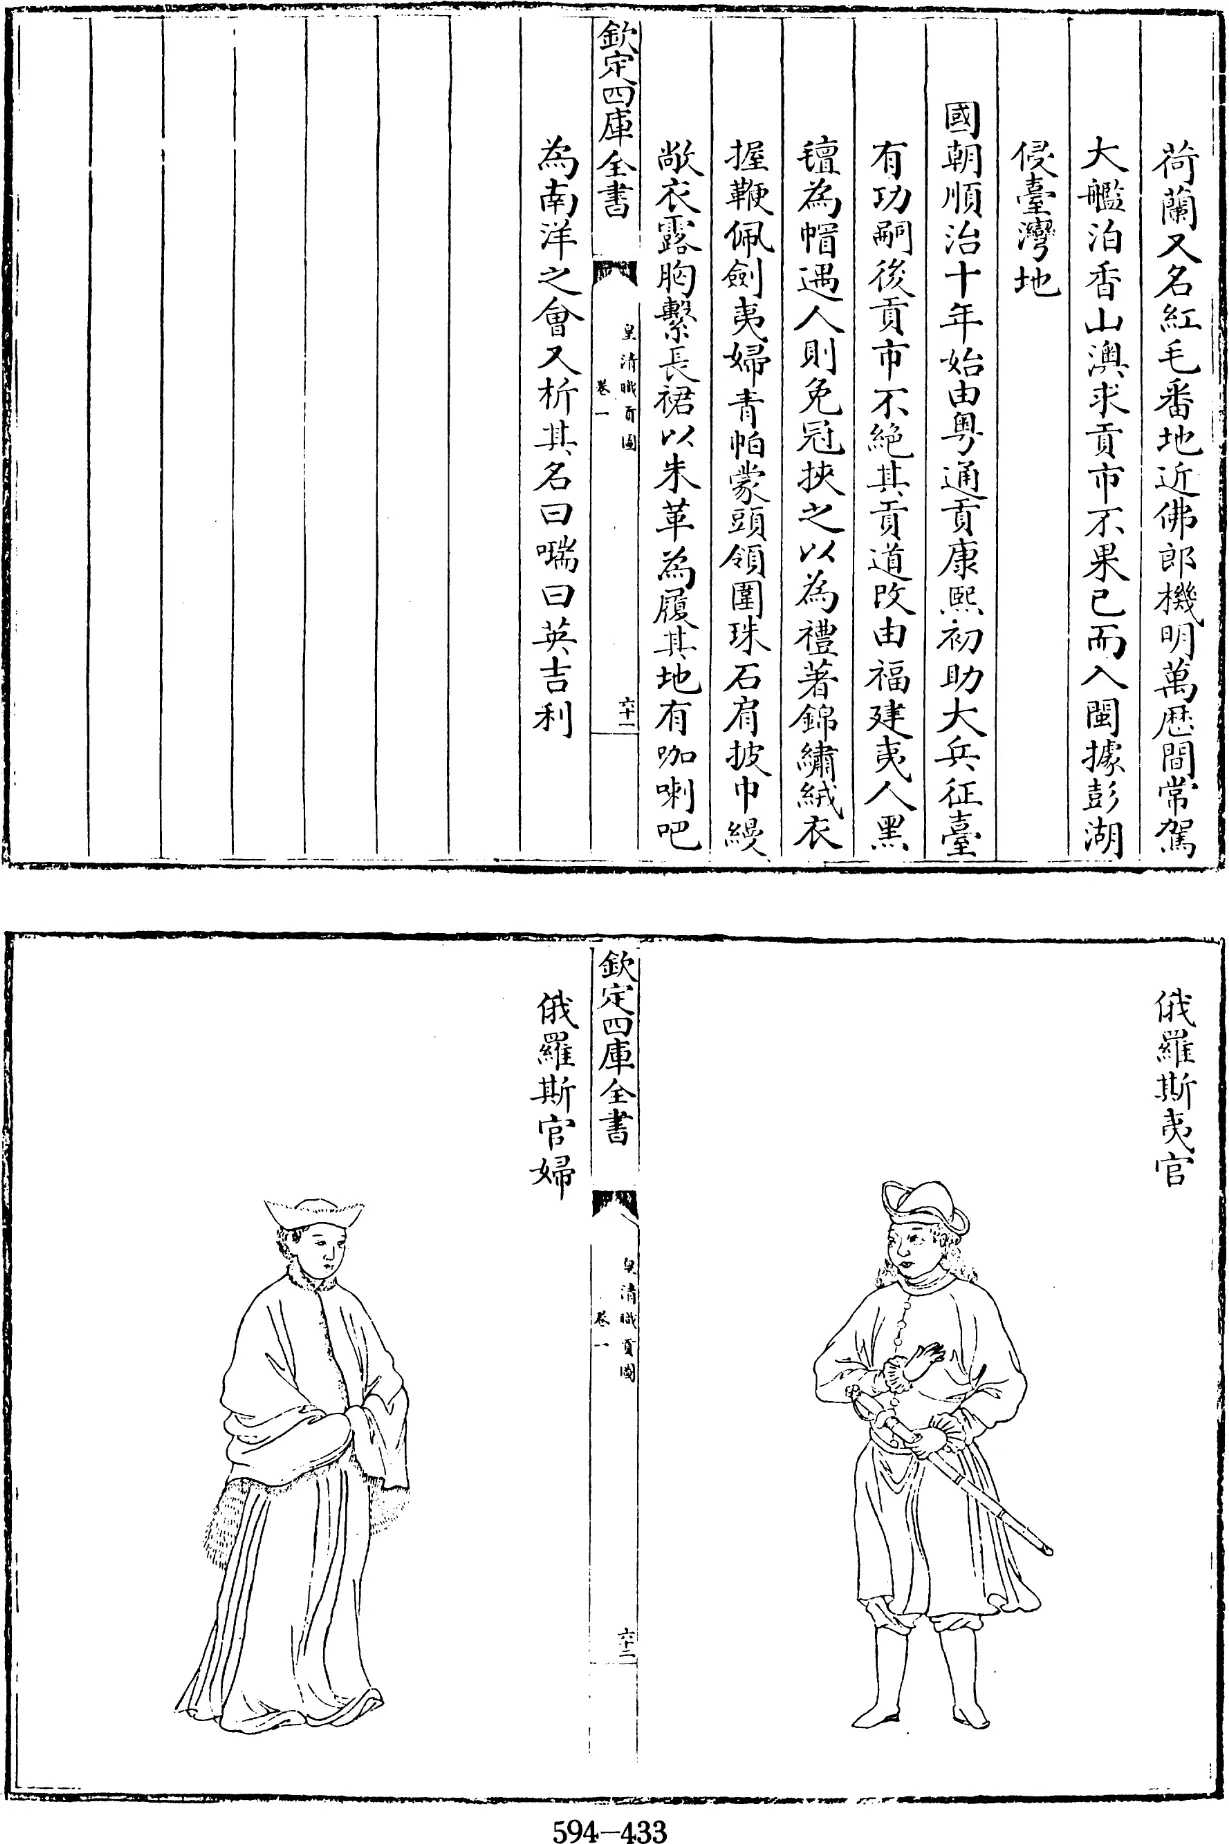 荷蘭又名紅毛番地近佛郎機明萬歴間常駕
大艦泊香山澳求貢市不果已而入閩據彭湖
侵臺灣地
國朝順治十年始由粤通貢康熙初助大兵征臺
有功嗣後貢市不絶其貢道改由福建夷人黑
氊為帽遇人則免冠挾之以為禮著錦繡絨衣
握鞭佩劍夷婦青帕蒙頭領圍珠石肩披巾縵
敞衣露胸繫長裙以朱革為履其地有咖喇吧
欽定四庫全書
皇清職貢圖
卷一
六十一
為南洋之會又析其名曰喘曰英吉利
俄羅斯夷官
欽定四庫全書
皇清職貢圖
卷一
六十二
俄羅斯官婦
594-433